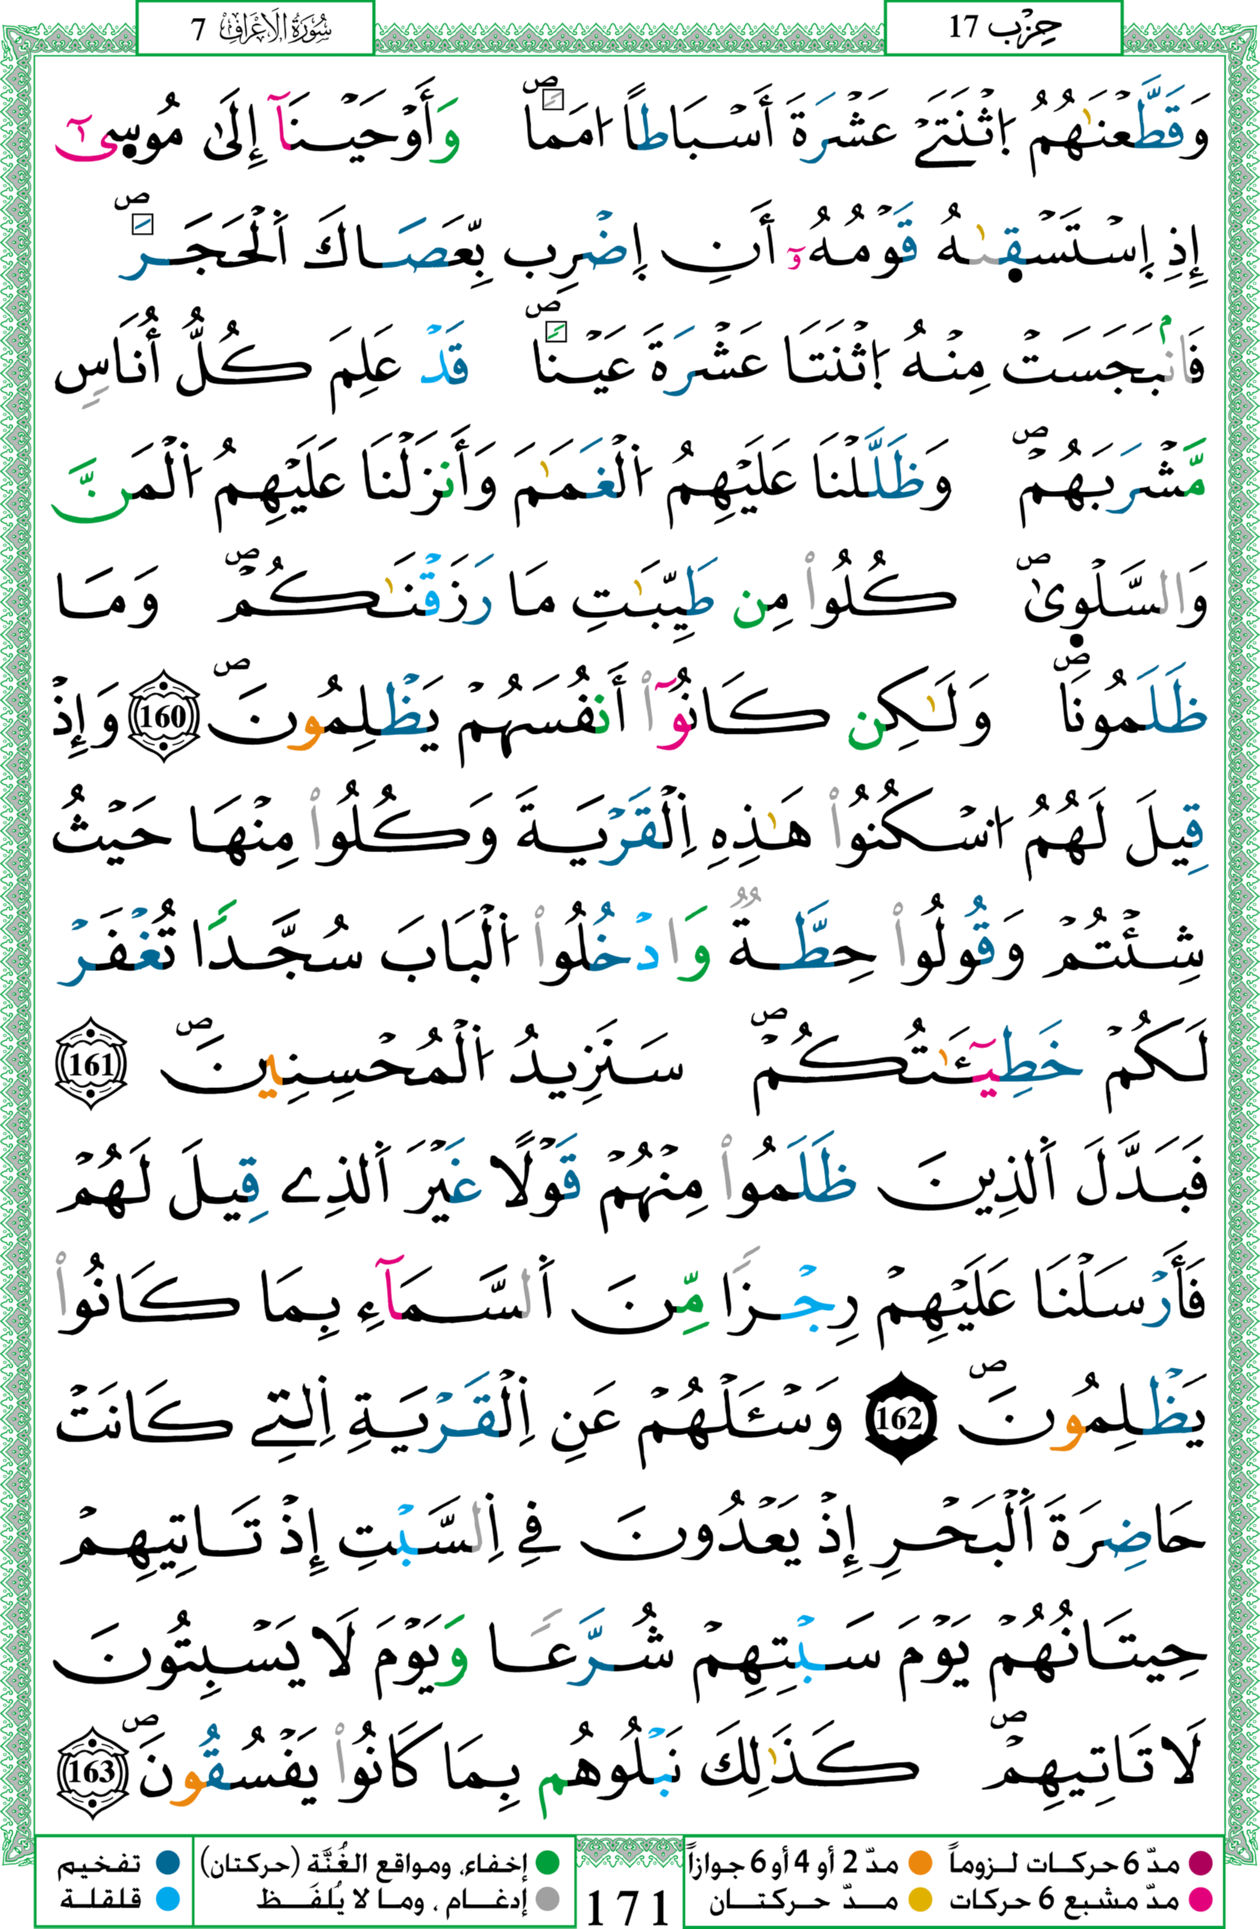 سُورَةُ الْأَعْرَافِ 7
حِزْب 17
وَقَطَّعْنَٰهُمُ اُ۪ثْنَتَےْ عَشْرَةَ أَسْبَاطاً اُمَماٗۖ وَأَوْحَيْنَآ إِلَىٰ مُوس۪ىٰٓ
إِذِ اِ۪سْتَسْق۪ىٰهُ قَوْمُهُۥٓ أَنِ اِ۪ضْرِب بِّعَصَاكَ اَ۬لْحَجَرَۖ
فَانۢبَجَسَتْ مِنْهُ اُ۪ثْنَتَا عَشْرَةَ عَيْناٗۖ قَدْ عَلِمَ كُلُّ أُنَاسٖ
مَّشْرَبَهُمْۖ وَظَلَّلْنَا عَلَيْهِمُ اُ۬لْغَمَٰمَ وَأَنزَلْنَا عَلَيْهِمُ اُ۬لْمَنَّ
وَالسَّلْو۪ىٰۖ كُلُواْ مِن طَيِّبَٰتِ مَا رَزَقْنَٰكُمْۖ وَمَا
ظَلَمُونَاۖ وَلَٰكِن كَانُوٓاْ أَنفُسَهُمْ يَظْلِمُونَۖ 160 وَإِذْ
قِيلَ لَهُمُ اُ۟سْكُنُواْ هَٰذِهِ اِ۬لْقَرْيَةَ وَكُلُواْ مِنْهَا حَيْثُ
شِئْتُمْ وَقُولُواْ حِطَّةٞ وَادْخُلُواْ اُ۬لْبَابَ سُجَّداٗ تُغْفَرْ
لَكُمْ خَطِيٓـَٰٔتُكُمْۖ سَنَزِيدُ اُ۬لْمُحْسِنِينَۖ 161
فَبَدَّلَ اَ۬لذِينَ ظَلَمُواْ مِنْهُمْ قَوْلاً غَيْرَ اَ۬لذِے قِيلَ لَهُمْ
فَأَرْسَلْنَا عَلَيْهِمْ رِجْزاٗ مِّنَ اَ۬لسَّمَآءِ بِمَا كَانُواْ
يَظْلِمُونَۖ 162 وَسْـَٔلْهُمْ عَنِ اِ۬لْقَرْيَةِ اِ۬لتِے كَانَتْ
حَاضِرَةَ اَ۬لْبَحْرِ إِذْ يَعْدُونَ فِے اِ۬لسَّبْتِ إِذْ تَاتِيهِمْ
حِيتَانُهُمْ يَوْمَ سَبْتِهِمْ شُرَّعاٗ وَيَوْمَ لَا يَسْبِتُونَ
لَا تَاتِيهِمْۖ كَذَٰلِكَ نَبْلُوهُم بِمَا كَانُواْ يَفْسُقُونَۖ 163
مدّ 6 حركات لـزوماً مدّ 2 أو 4 أو 6 جوازاً إخفاء، ومواقع الغُنَّة (حركتان) تفخيم
مدّ مشبع 6 حركات مـدّ حركتـان إدغـام ، ومـا لا يُلفَـظ قلقلـة
171